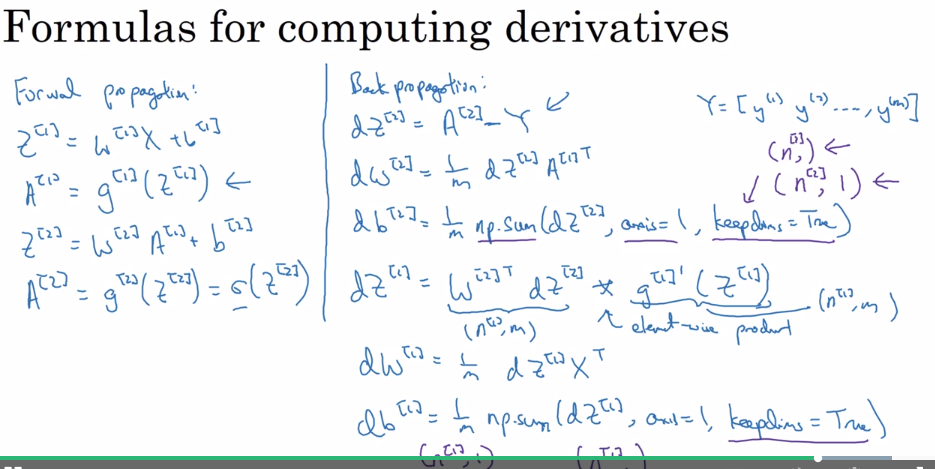 Formulas for computing derivatives
Forward propagation:
Z^[1] = W^[1] X + b^[1]
A^[1] = g^[1](Z^[1]) ←
Z^[2] = W^[2] A^[1] + b^[2]
A^[2] = g^[2](Z^[2]) = σ(Z^[2])
Back propagation:
dZ^[2] = A^[2] - Y ↙
Y = [y^(1) y^(2) ..., y^(m)]
dW^[2] = 1/m dZ^[2] A^[1]T
(n^[2],) ←
↙ (n^[2], 1) ←
db^[2] = 1/m np.sum(dZ^[2], axis=1, keepdims=True)
dZ^[1] = W^[2]T dZ^[2] * g^[1]'(Z^[1])
(n^[1], m)
↖ element-wise product
(n^[1], m)
dW^[1] = 1/m dZ^[1] X^T
db^[1] = 1/m np.sum(dZ^[1], axis=1, keepdims=True)
(n^[1], 1)